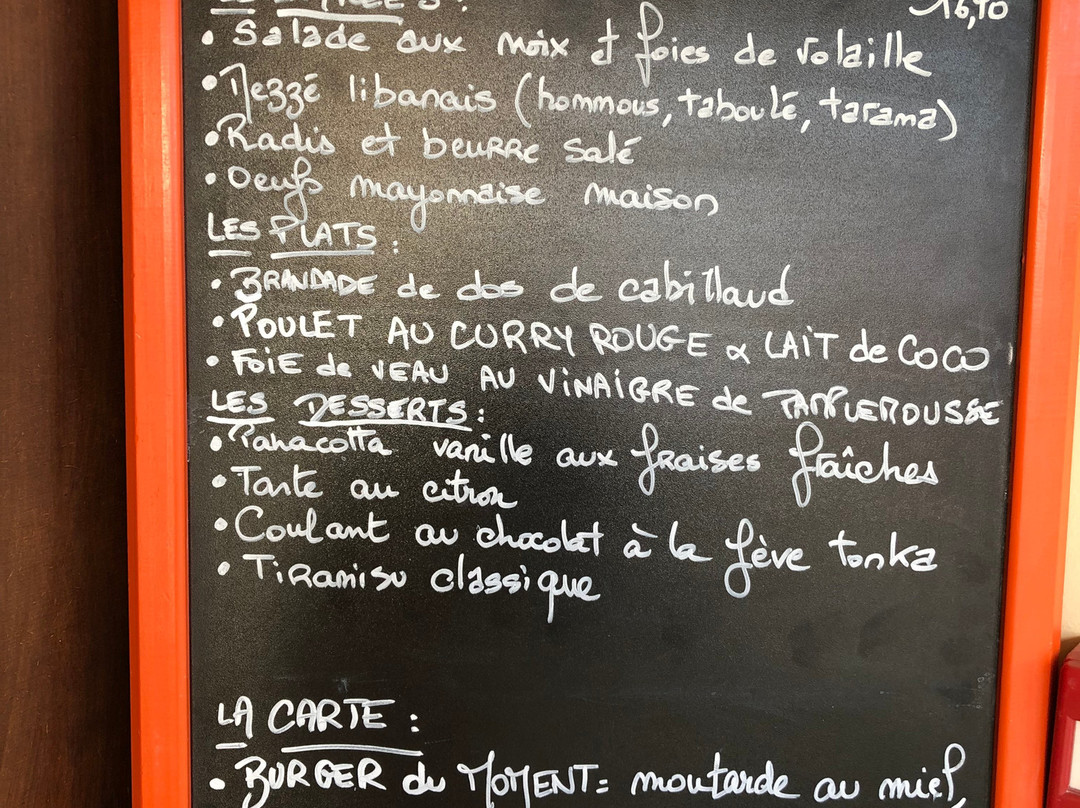 16,70
• Salade aux noix et foies de volaille
• Mezzé libanais (hommous, taboulé, tarama)
• Radis et beurre salé
• Oeufs mayonnaise maison
LES PLATS :
• BRANDADE de dos de cabillaud
• POULET AU CURRY ROUGE & LAIT de COCO
• FOIE de VEAU AU VINAIGRE de PAMPLEMOUSSE
LES DESSERTS :
• Panacotta vanille aux fraises fraîches
• Tarte au citron
• Coulant au chocolat à la fève tonka
• Tiramisu classique
LA CARTE :
• BURGER du MOMENT : moutarde au miel,